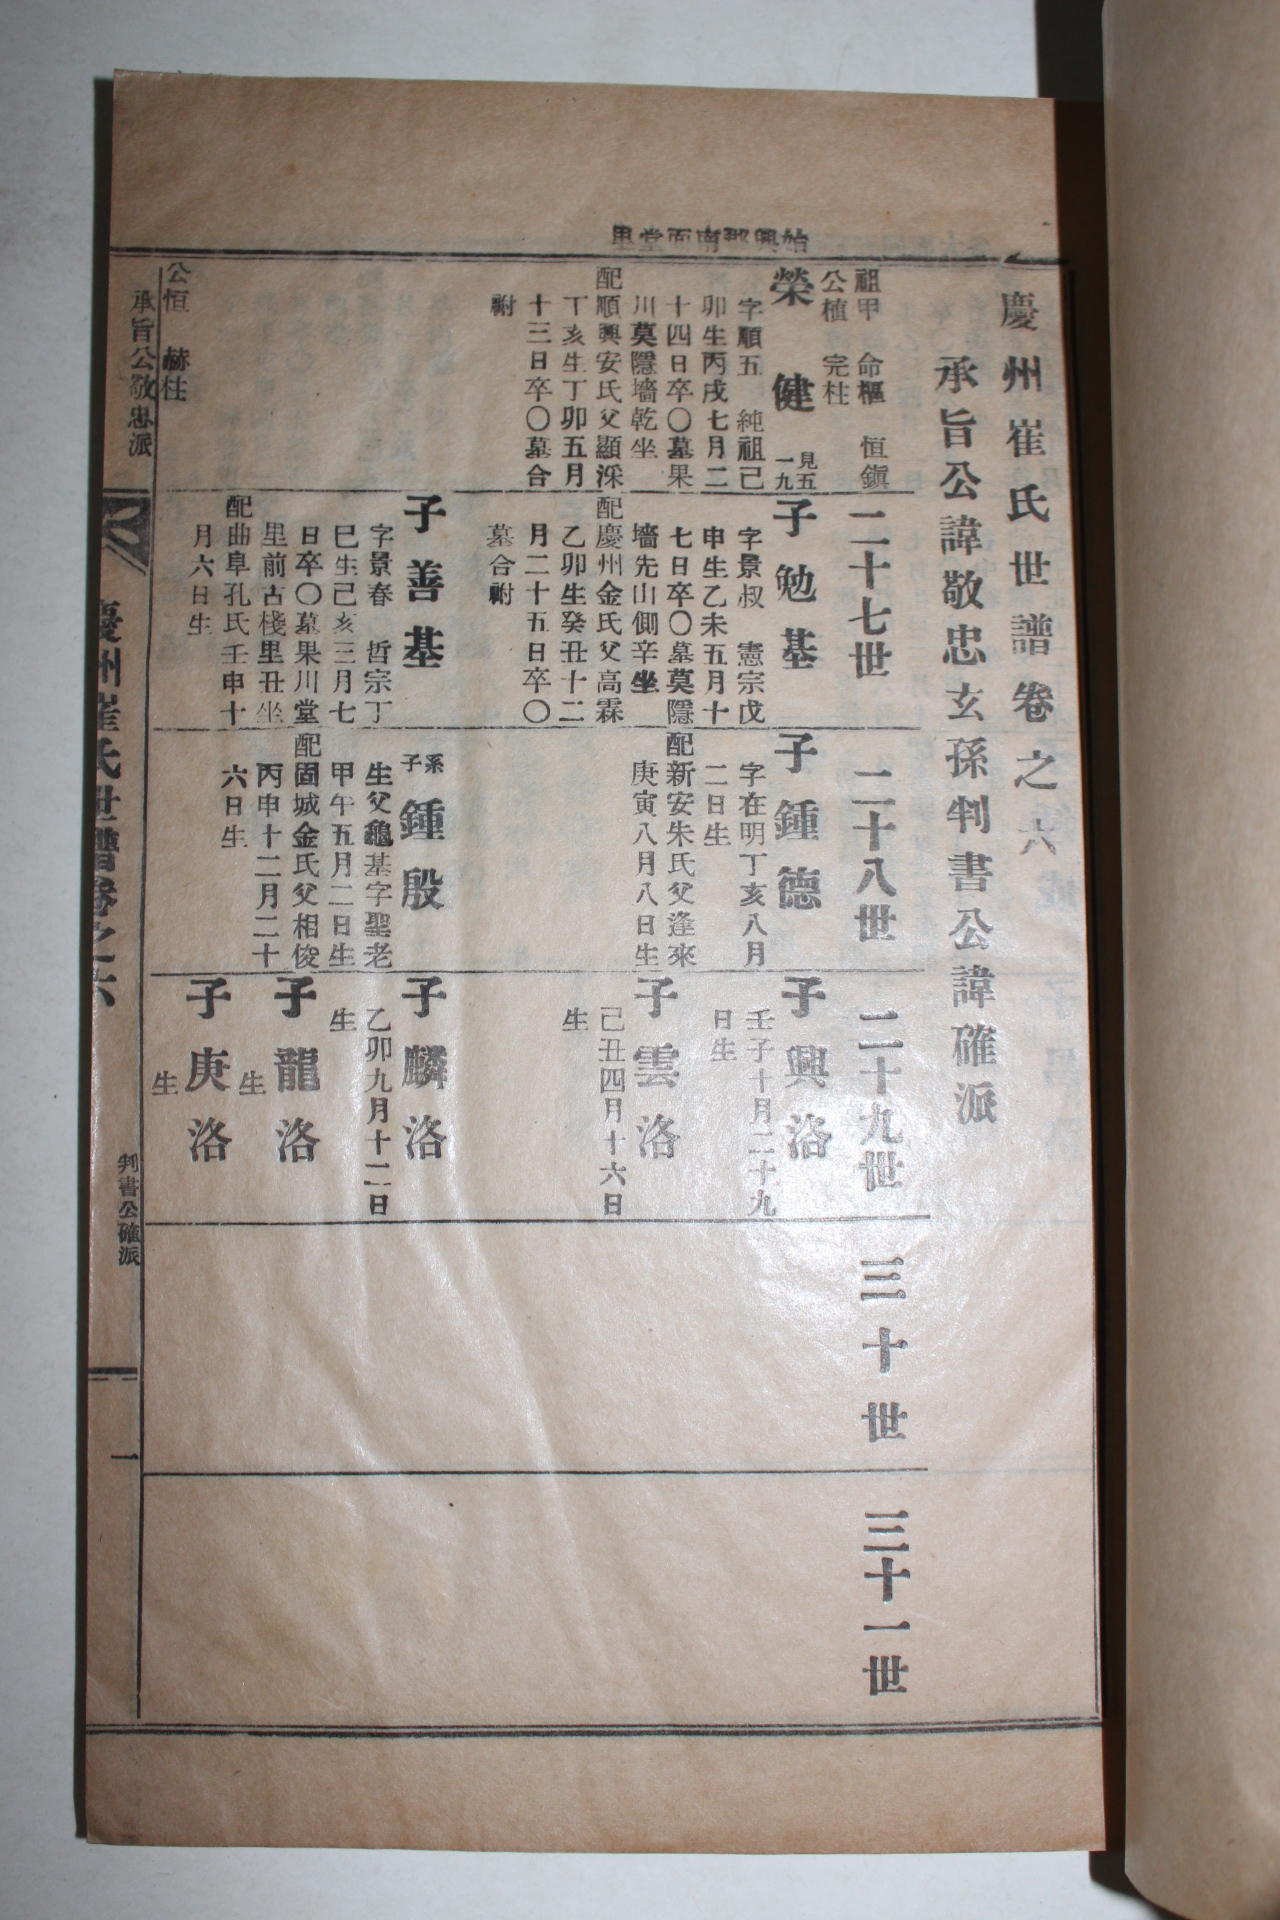 始興郡南面堂里
慶州崔氏世譜卷之六
承旨公諱敬忠玄孫判書公諱確派
祖甲 命樞 恒鎭
公植 完柱
二十七世
二十八世
二十九世
三十世
三十一世
榮健
見五
一九
字順五 純祖己
卯生丙戌七月二
十四日卒〇墓果
川莫隱墻乾坐
配順興安氏父顯深
丁亥生丁卯五月
十三日卒〇墓合
祔
子勉基
字景叔 憲宗戊
申生乙未五月十
七日卒〇墓莫隱
墻先山側辛坐
配慶州金氏父高霖
乙卯生癸丑十二
月二十五日卒〇
墓合祔
子鍾德
字在明丁亥八月
二日生
配新安朱氏父逢來
庚寅八月八日生
子興洛
壬子十月二十九
日生
子雲洛
己丑四月十六日
生
子善基
字景春 哲宗丁
巳生己亥三月七
日卒〇墓果川堂
里前古棧里丑坐
配曲阜孔氏壬申十
月六日生
系子
鍾殷
生父龜基字聖老
甲午五月二日生
配固城金氏父相俊
丙申十二月二十
六日生
子麟洛
乙卯九月十二日
生
子龍洛
生
子庚洛
生
公恒 赫柱
承旨公敬忠派
慶州崔氏世譜卷之六
判書公確派
一